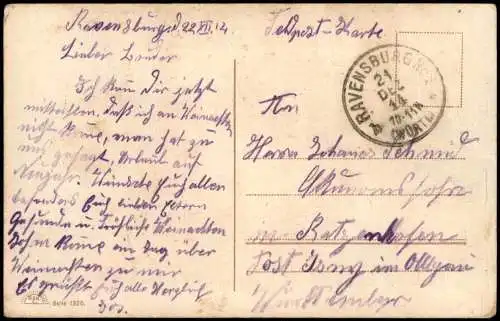 Ravensburg d 22 XII 14
Lieber Bruder
Ich kan dir jetzt
mitteilen, daß ich an Weinachten
nicht kome, man hat zu
uns gesagt, Urlaub auf
Neujahr. Wünsche Euch allen
besonders Euch lieben Eltern
Gesunde u. Fröhliche Weinachten
kome ein Tag über
Weinachten zu mir
Es grüßt Euch alle Herzlich
Jos.
Serie 1320.
Feldpost-Karte
RAVENSBURG
21
DEZ
14
10-11V
(WÜRTT)
An
Herrn Johannes Schmid
Ökonoms
in Ratzenhofen
Post Isny im Allgäu
Württember